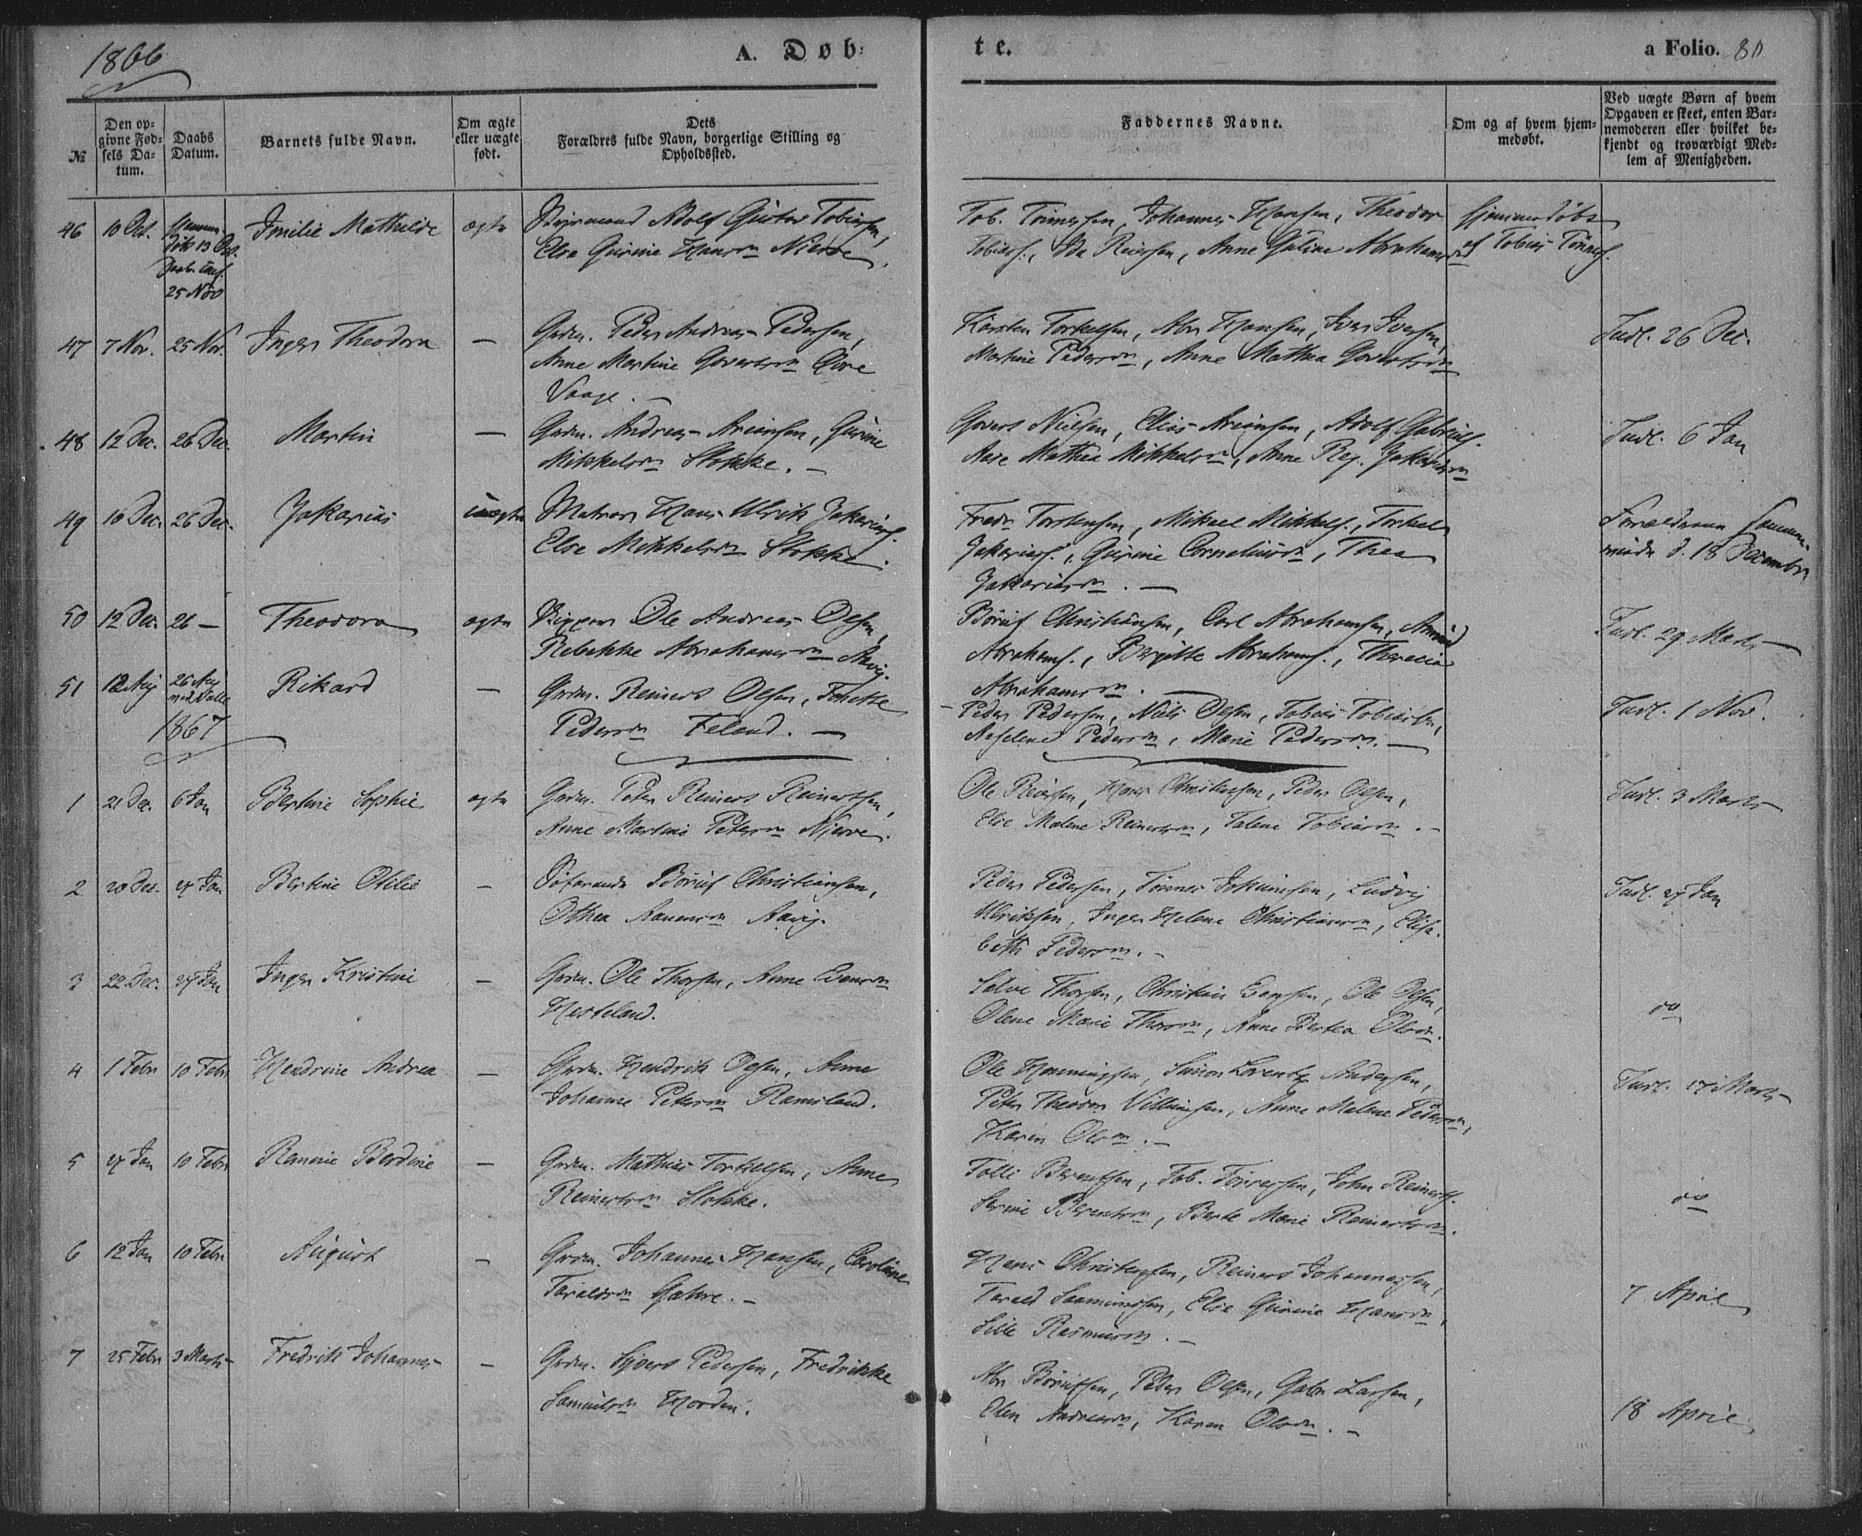 1866
A. Døb-
te.
a Folio. 80
№
Den op-
givne Fød-
sels Da-
tum.
Daabs
Datum.
Barnets fulde Navn.
Om ægte
eller uægte
født.
Dets
Forældres fulde Navn, borgerlige Stilling og
Opholdssted.
Faddernes Navne.
Om og af hvem hjem-
medøbt.
Ved uægte Børn af hvem
Opgaven er skeet, enten Bar-
nemoderen eller hvilket be-
kjendt og troværdigt Med-
lem af Menigheden.
46 10 Oct. 13 Oct. Emilie Mathilde ægte Adolf Gustav Tobiass.,
25 Nov
Else Gurine Hansdn Njerve.
Tob. Tønnessen, Johannes Hansen, Theodor
Tobiass., Ida Reiersen, Anne Guline Abrahamsdn
Hjemmedøbt
af Tobias Tønness.
47 7 Nov. 25 Nov. Inger Theodora — Grdm. Peder Andreas Pedersen,
Anne Martine Govertsdn Øvre
Vaage. —
Karsten Torkelsen, Abr Hansen, Iver Iversen,
Martine Pedersdn, Anne Mathea Govertsdn
Indl. 26 Dec.
48 12 Dec. 26 Dec. Martin — Grdm. Andreas Ariansen, Gurine
Mikkelsdn Stokke. —
Govert Nielsen, Elias Ariansen, Adolf Gabriels.
Ane Mathea Mikkelsdn, Anne Reg. Jakobsdn
Indl. 6 Jan
49 10 Dec. 26 Dec. Zakarias uægte Matros Hans Ulrik Zakariass.
Else Mikkelsdn Stokke.
Fredr. Torstensen, Mikael Mikkels., Torkel
Zakariass., Gurine Corneliusdn, Thea
Zakariasdn. —
Forældrene
d. 18 December
50 12 Dec. 26 — Theodora ægte Skipper Ole Andreas Olsen,
Rebekke Abrahamsdn Aavig.
Børuf Christiansen, Carl Abrahamsen,
Abrahams., Bergitte Abrahams., Theresia
Abrahamsdn. —
Indl. 29 Marts
51 12 Aug 26 Aug Rikard — Grdm. Reinert Olsen, Tonette
Pedersdn Feland. —
Peder Pedersen, Niels Olsen, Tobias Tobiassen,
Aselene Pedersdn, Marie Pedersdn. —
Indl. 1 Nov.
1867
1 21 Dec. 6 Jan Bertine Sophie ægte Grdm. Peter Reinert Reinertsen,
Anne Martine Petersdn Njerve.
Ole Reiersen, Hans Christensen, Peder Olsen,
Else Malene Reinertsdn, Talene Tobiasdn. —
Indl. 3 Marts
2 20 Dec. 27 Jan Bertine Otilie — Søfarende Børuf Christiansen,
Othea Aanensdn Aavig.
Peder Pedersen, Tønnes Jokumsen, Ludvig
Ulriksen, Inger Helene Christiansdn, Elisa-
beth Pedersdn. —
Indl. 27 Jan
3 22 Dec. 27 Jan Inger Kristine — Grdm. Ole Thorsen, Anne Evensdn
Hesteland.
Salve Thorsen, Christian Evensen, Ole Olsen,
Olene Marie Thorsdn, Anne Bertea Olsdn.
do
4 1 Febr 10 Febr Hendrine Andrea — Grdm. Hendrik Olsen, Anne
Johanne Petersdn Ramsland.
Ole Henningsen, Simon Lorentz Andersen,
Peter Theodor Villumsen, Anne Malene Pedersdn,
Karen Olsdn. —
Indl. 17 Marts
5 27 Jan 10 Febr Ramine Berdine — Grdm. Mathias Torkelsen, Anne
Reinertsdn Stokke.
Tolli Berentsen, Tob. Tønnessen, John Reinerts.
Serine Berentsdn, Berte Marie Reinertsdn.
do
6 12 Jan 10 Febr August — Grdm. Johannes Hansen, Caroline
Taraldsdn Gahre. —
Hans Christensen, Reinert Johannessen,
Tarald Saamundsen, Else Gurine Hansdn,
Sille Rasmusdn. —
7 April
7 25 Febr 3 Marts Fredrik Johannes — Grdm. Sivert Pedersen, Fredrikke
Samuelsdn Horden.
Abr Børufsen, Peder Olsen, Gabr Larsen,
Elen Andreasdn, Karen Olsdn. —
18 April